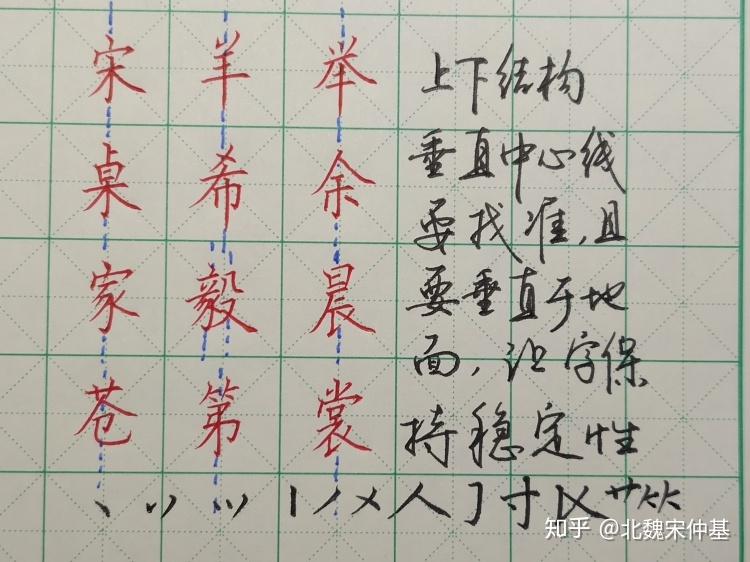 宋 羊 举
桌 希 余
家 毅 晨
苍 第 裳
上下结构
垂直中心线
要找准,且
要垂直于地
面,让字保
持稳定性
丶 丷 丷 丨 㐅 人 亅 寸 艹
知乎 @北魏宋仲基